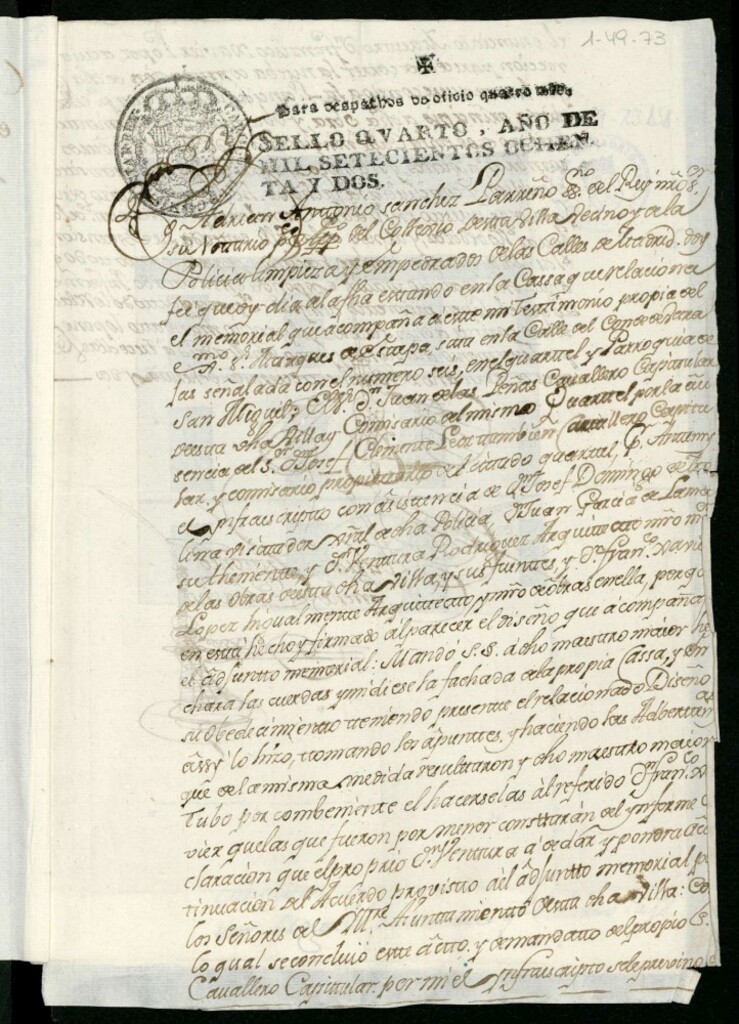 1-49-73
Para despachos de oficio quatro mrs.
SELLO QVARTO, AÑO DE
MIL SETECIENTOS OCHEN
TA Y DOS.
Adrian Antonio Sanchez Parreño SSno. del Rey nro. Sr.
su Notario del Collegio de esta Villa Vecino y de la
Policia Limpieza y empedrados de las Calles de Madrid. doy
fee que oy dia de la fha estando en la Cassa que relaciona
el memorial que acompaña a este mi testimonio propia del
Exmo. Sr. Marques de Estepa, sita en la Calle del Conde de Vara
las señalada con el numero seis, en el quartel y Parroquia de
San Miguel; Dn. Juan de las Peñas Cavallero Capitular
de esta dha Villa y Comisario del mismo Quartel por la au
sencia del Sr. Dn. Josef Clemente tambien Cavallero Capitu
lar, y comisario propietario del citado quartel, P. Antemi
el Infraescripto con asistencia de Dn. Josef Domingo de
Visitador Gral de dha Policia, Dn. Juan Garcia de
su theniente, y Dn. Ventura Rodriguez Arquitecto mro m
de las obras de esta dha Villa, y sus fuentes, y Dn. Franco. Xavie
Lopez igualmente Arquitecto y mro de obras en ella, por q
en esta hecho y firmado al parecer el diseño que acompaña
el adjunto memorial: Mandó S.S. a dho maestro maior he
chara las cuerdas y midiese la fachada de la propia Cassa, y en
su obedecimiento teniendo presente el relacionado Diseño
assi lo hizo, tomando los apuntes, y haciendo las Advertan
que de la misma medida resulttaron y dho maestro maior
Tubo por combeniente el hacerselas al referido Dn. Franco. X
vier que las que fueron por menor consttarán del ynforme
claracion que el proprio Dn. Ventura a de dar y pondra a co
tinuacion del Acuerdo provisto a el adjuntto memorial p
los Señores del Illre. Ayuntamiento de esta dha Villa: Co
lo qual se concluió este actto, y de mandatto del propio S.
Cavallero Capittular. por mi el Ynfraescripto se le previno